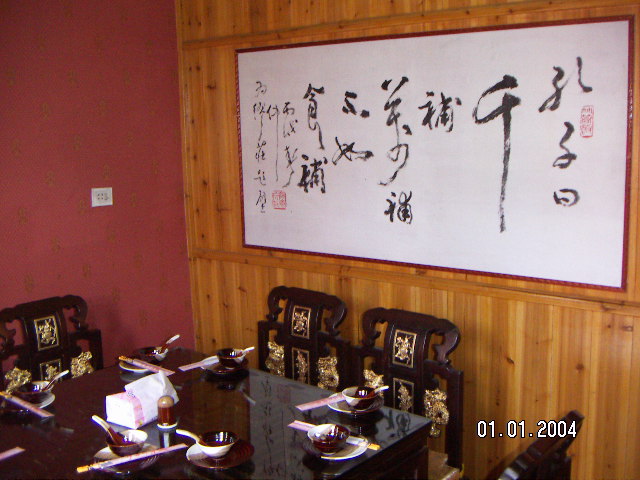 孔子曰
千
補
萬補
不如
食補
丙戌
01.01.2004